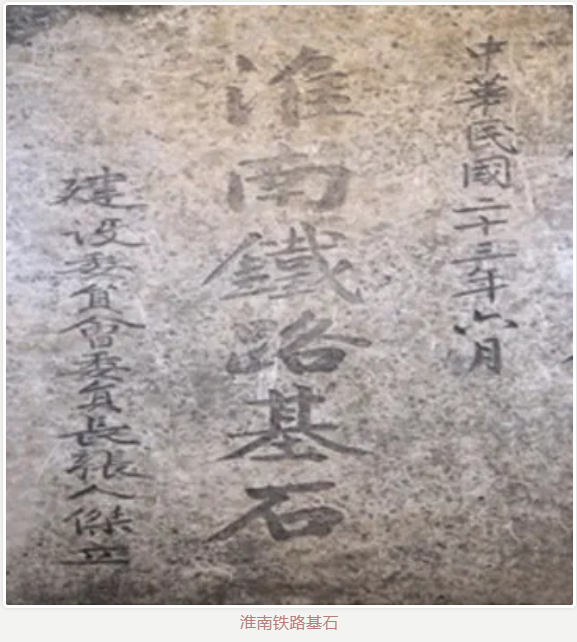 中華民國二十三年六月
淮南鐵路基石
建設委員會委員長張人傑立
淮南铁路基石